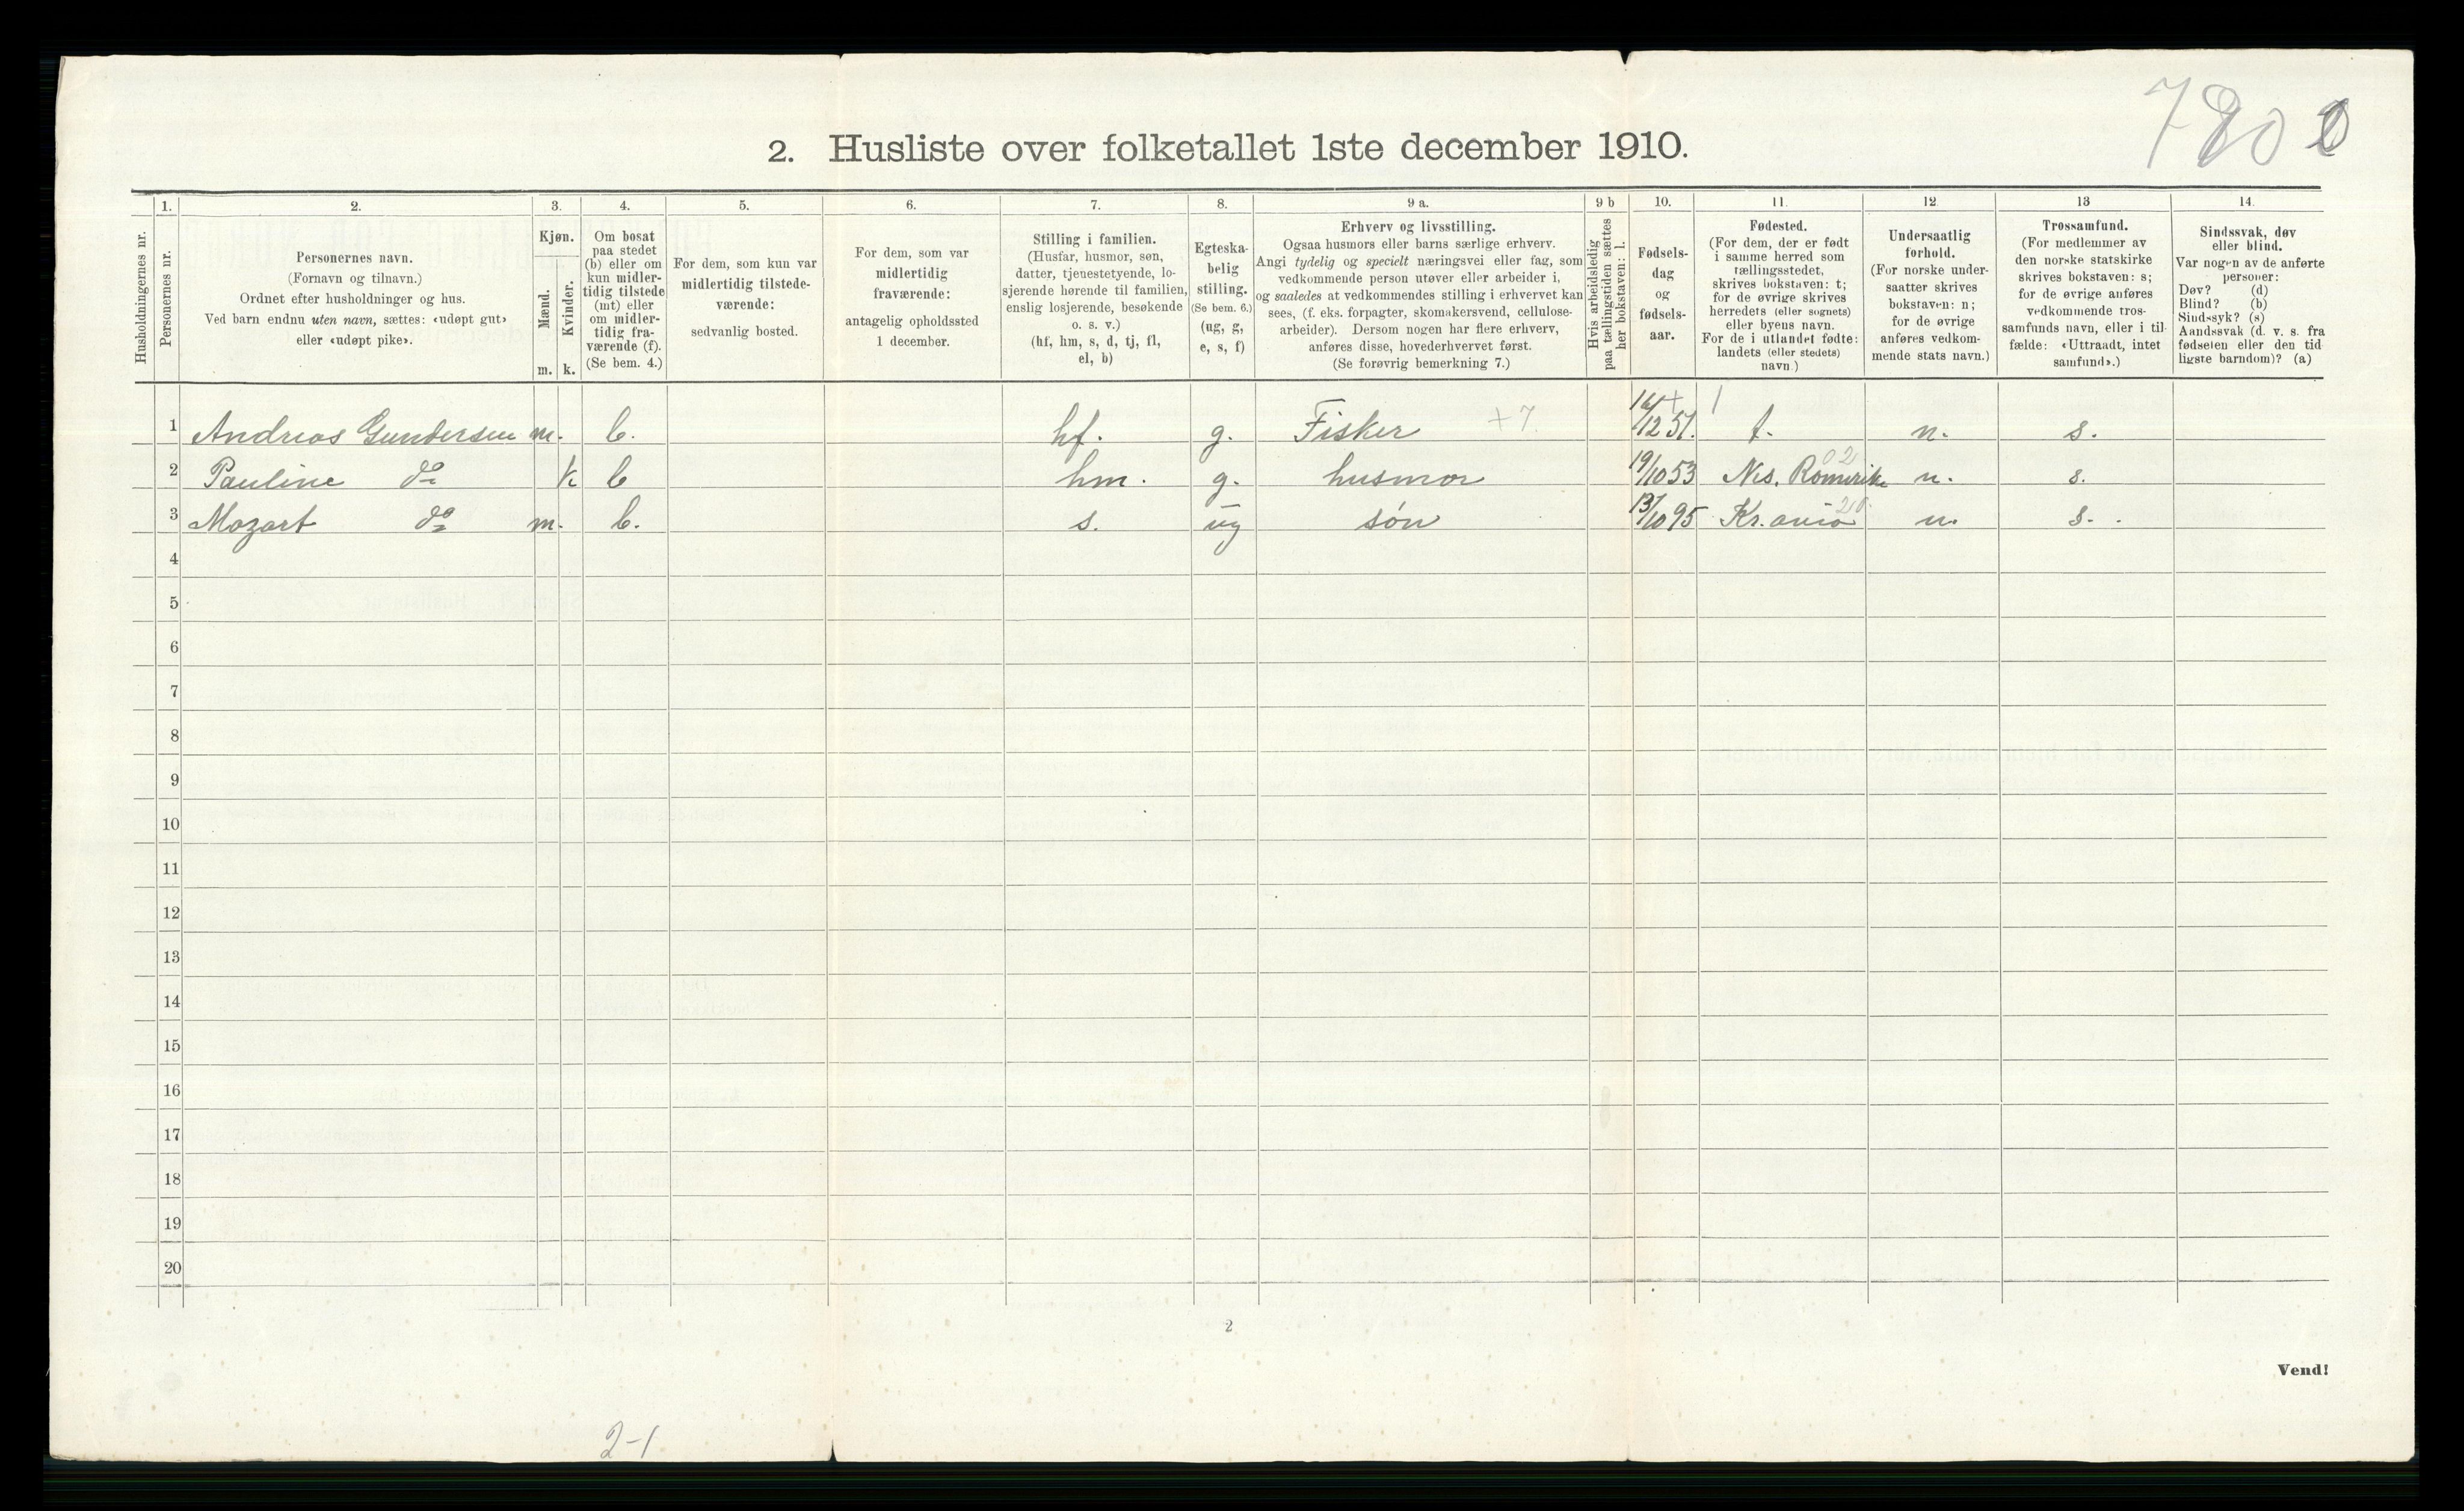 7800
2. Husliste over folketallet 1ste december 1910.
1. 2. 3. 4. 5. 6. 7. 8. 9 a. 9 b 10. 11. 12 13 14.
Husholdningernes nr.
Personernes nr.
Personernes navn.
(Fornavn og tilnavn.)
Ordnet efter husholdninger og hus.
Ved barn endnu uten navn, sættes: «udøpt gut»
eller «udøpt pike».
Kjøn.
Mænd.
Kvinder.
m. k.
Om bosat
paa stedet
(b) eller om
kun midler-
tidig tilstede
(mt) eller
om midler-
tidig fra-
værende (f).
(Se bem. 4.)
For dem, som kun var
midlertidig tilstede-
værende:
sedvanlig bosted.
For dem, som var
midlertidig
fraværende:
antagelig opholdssted
1 december.
Stilling i familien.
(Husfar, husmor, søn,
datter, tjenestetyende, lo-
sjerende hørende til familien,
enslig losjerende, besøkende
o. s. v.)
(hf, hm, s, d, tj, fl,
el, b)
Egteska-
belig
stilling.
(Se bem. 6.)
(ug, g,
e, s, f)
Erhverv og livsstilling.
Ogsaa husmors eller barns særlige erhverv.
Angi tydelig og specielt næringsvei eller fag, som
vedkommende person utøver eller arbeider i,
og saaledes at vedkommendes stilling i erhvervet kan
sees, (f. eks. forpagter, skomakersvend, cellulose-
arbeider). Dersom nogen har flere erhverv,
anføres disse, hovederhvervet først.
(Se forøvrig bemerkning 7.)
Hvis arbeidsledig
paa tællingstiden sættes
her bokstaven: l.
Fødsels-
dag
og
fødsels-
aar.
Fødested.
(For dem, der er født
i samme herred som
tællingsstedet,
skrives bokstaven: t;
for de øvrige skrives
herredets (eller sognets)
eller byens navn.
For de i utlandet fødte:
landets (eller stedets)
navn.)
Undersaatlig
forhold.
(For norske under-
saatter skrives
bokstaven: n;
for de øvrige
anføres vedkom-
mende stats navn.)
Trossamfund.
(For medlemmer av
den norske statskirke
skrives bokstaven: s;
for de øvrige anføres
vedkommende tros-
samfunds navn, eller i til-
fælde: «Uttraadt, intet
samfund».)
Sindssvak, døv
eller blind.
Var nogen av de anførte
personer:
Døv? (d)
Blind? (b)
Sindssyk? (s)
Aandssvak (d. v. s. fra
fødselen eller den tid
ligste barndom)? (a)
1 Andreas Gundersen m. b. hf. g. Fisker +7 16/12 51. t. n. s.
2 Pauline do k b hm. g. husmor 19/10 53 Nes, Romerike 02 n. s.
3 Mozart do m. b. s. ug søn 13/10 95 Kr.ania 20 n. s.
4
5
6
7
8
9
10
11
12
13
14
15
16
17
18
19
20
2
Vend!
2-1